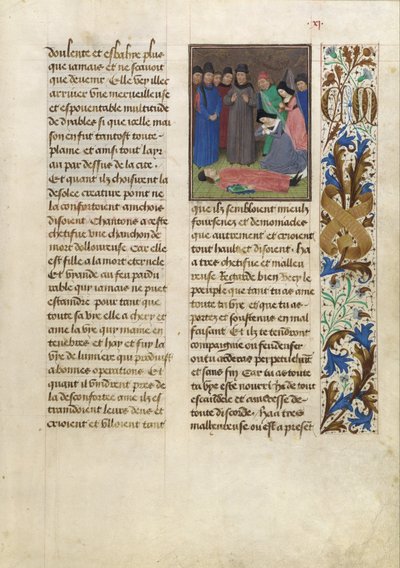 .xj.
doulente et esbahie plus
que iamais et ne scavoit
que devenir Elle vey illec
arriver une merveilleuse
et espoventable multitude
de dyables si que icelle mai
son en fut tantost toute
plaine et ainsi tout layr
au par dessus de la cite.
Et quant ilz choisirent la
desolee creature point ne
la conforterent ainchois
disoient Chantons a ceste
chetisve une chanchon de
mort dolloureuse Car elle
est fille a la mort eternele
Et viande au feu pardu
rable qui iamais ne puet
estaindre pour tant que
toute sa vie elle a chery et
ame la vie qui maine en
tenebres et hay et fuy la
vie de lumiere qui produist
a bonnes operations Et
quant ilz vindrent pres de
la desconfortee ame ilz es
traindoient leurs dens et
crioient et ulloient tant
que ilz sembloient mieulx
foursenez et demoniacles
que autrement et crioient
tout hault et disoient. Ha
a tres chetifve et malleu
reuse Regarde bien Vecy le
poeuple que tant tu as ame
toute ta vie et que tu as
portez et soustenus en mal
faisant Et ilz te tendront
compaignie ou feu denfer
ou tu arderas perpetuelment
et sans fin Car tu as toute
ta vye este nourriche de tout
escandele et amieresse de
toute discorde. Ha a tres
malleureuse ou est a preset